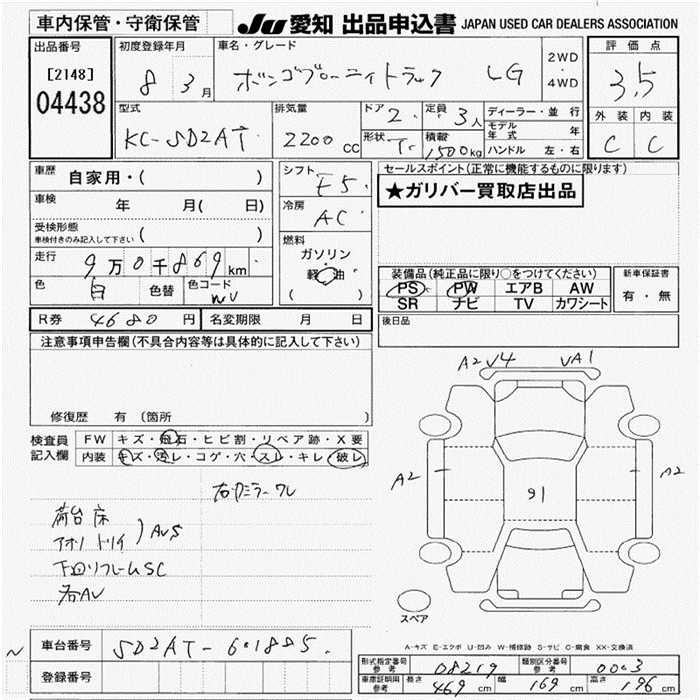 車内保管・守衛保管
JU 愛知 出品申込書 JAPAN USED CAR DEALERS ASSOCIATION
出品番号
[2148]
04438
初度登録年月
8 3月
車名・グレード
ボンゴブローニィトラック LG
2WD
・
4WD
評価点
3.5
外装 内装
C C
型式
KC-SD2AT
排気量
2200cc
ドア 2
形状 T
定員 3人
積載 1500kg
ディーラー・並行
モデル年式 年
ハンドル 左・右
車歴 自家用・( )
車検 年 月( 日)
受検形態
車検付きのみ記入して下さい ( )
走行 9万0千869km
色 白 色替 色コード WV
R券 4680円 名変期限 月 日
シフト F5
冷房 AC
燃料
ガソリン
・
軽油
( )
セールスポイント (正常に機能するものに限ります)
★ガリバー買取店出品
装備品 (純正品に限り○をつけてください)
PS PW エアB AW
SR ナビ TV カワシート
新車保証書
有・無
後日品
注意事項申告欄 (不具合内容等は具体的に記入して下さい)
修復歴 有 (箇所 )
検査員記入欄
FW キズ・飛石・ヒビ割・リペア跡・X要
内装 キズ・汚レ・コゲ・穴・スレ・キレ・破レ
右ミラーワレ
荷台 床
アオリ トリイ ) AUS
下回リフレームSC
各AU
A2 V4 VA1
A2 A2
91
スペア
A-キズ E-エクボ U-凹み W-補修跡 S-サビ C-腐食 XX-交換済
車台番号 SD2AT-601885
登録番号
型式指定番号 参考 08219
類別区分番号 参考 0003
車庫証明用 参考 長さ 469cm 幅 169cm 高さ 196cm